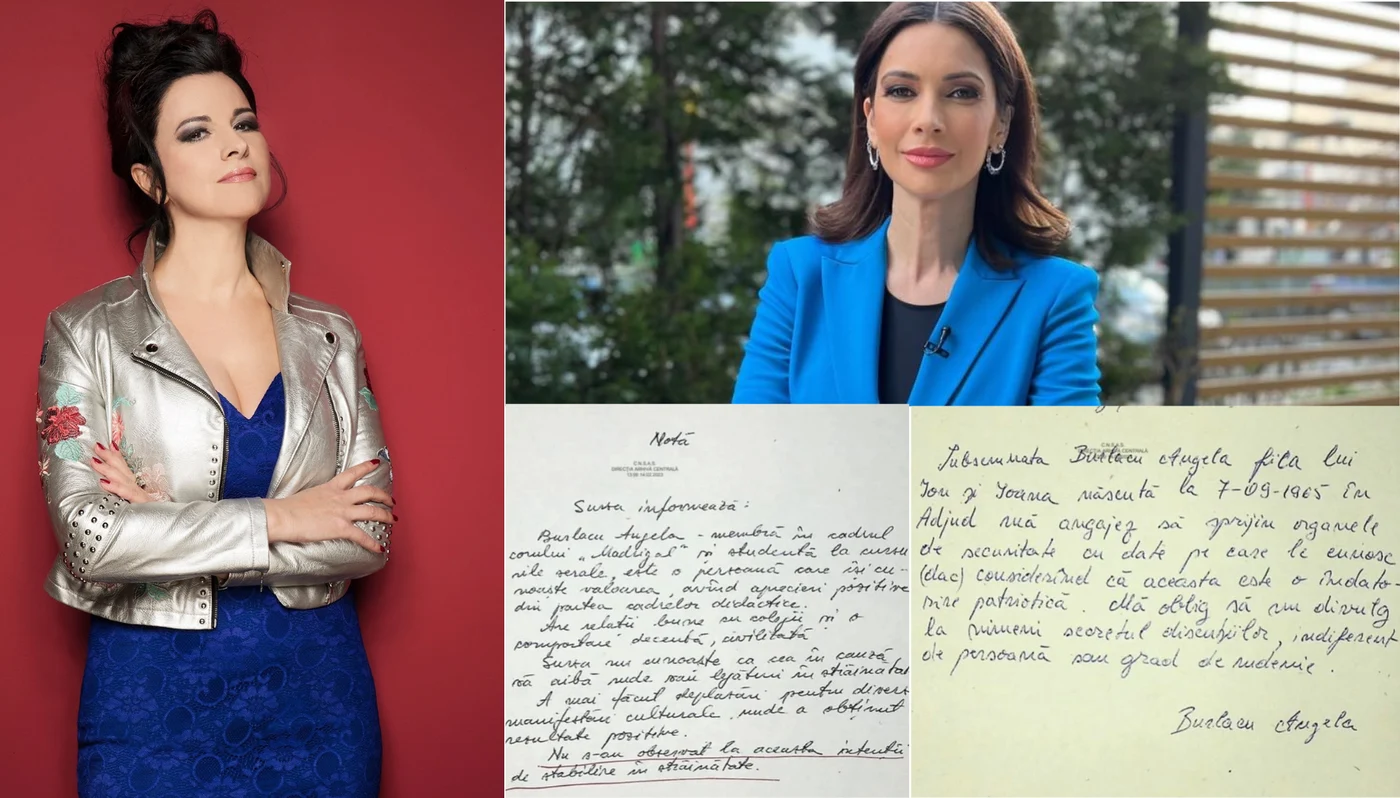 Notă
C.N.S.A.S.
DIRECȚIA ARHIVĂ CENTRALĂ
Sursa informează:
Burlacu Angela - membră în cadrul
corului „Madrigal” și studentă la cursu
rile serale, este o persoană care își cu-
noaște valoarea, având aprecieri pozitive
din partea cadrelor didactice.
Are relații bune cu colegii și o
comportare decentă, civilizată
Sursa nu cunoaște ca cea în cauză
să aibă rude sau legături în străinătat
A mai făcut deplasări pentru divers
manifestări culturale, unde a obținut
rezultate pozitive.
Nu s-au observat la aceasta intenții
de stabilire în străinătate.
C.N.S.A.S.
DIRECȚIA ARHIVĂ CENTRALĂ
Subsemnata Burlacu Angela fiica lui
Ion și Ioana născută la 7-09-1965 în
Adjud mă angajez să sprijin organele
de securitate cu date pe care le cunosc
(dac) considerînd că aceasta este o îndato-
rire patriotică. Mă oblig să nu divulg
la nimeni secretul discuțiilor, indiferent
de persoană sau grad de rudenie.
Burlacu Angela